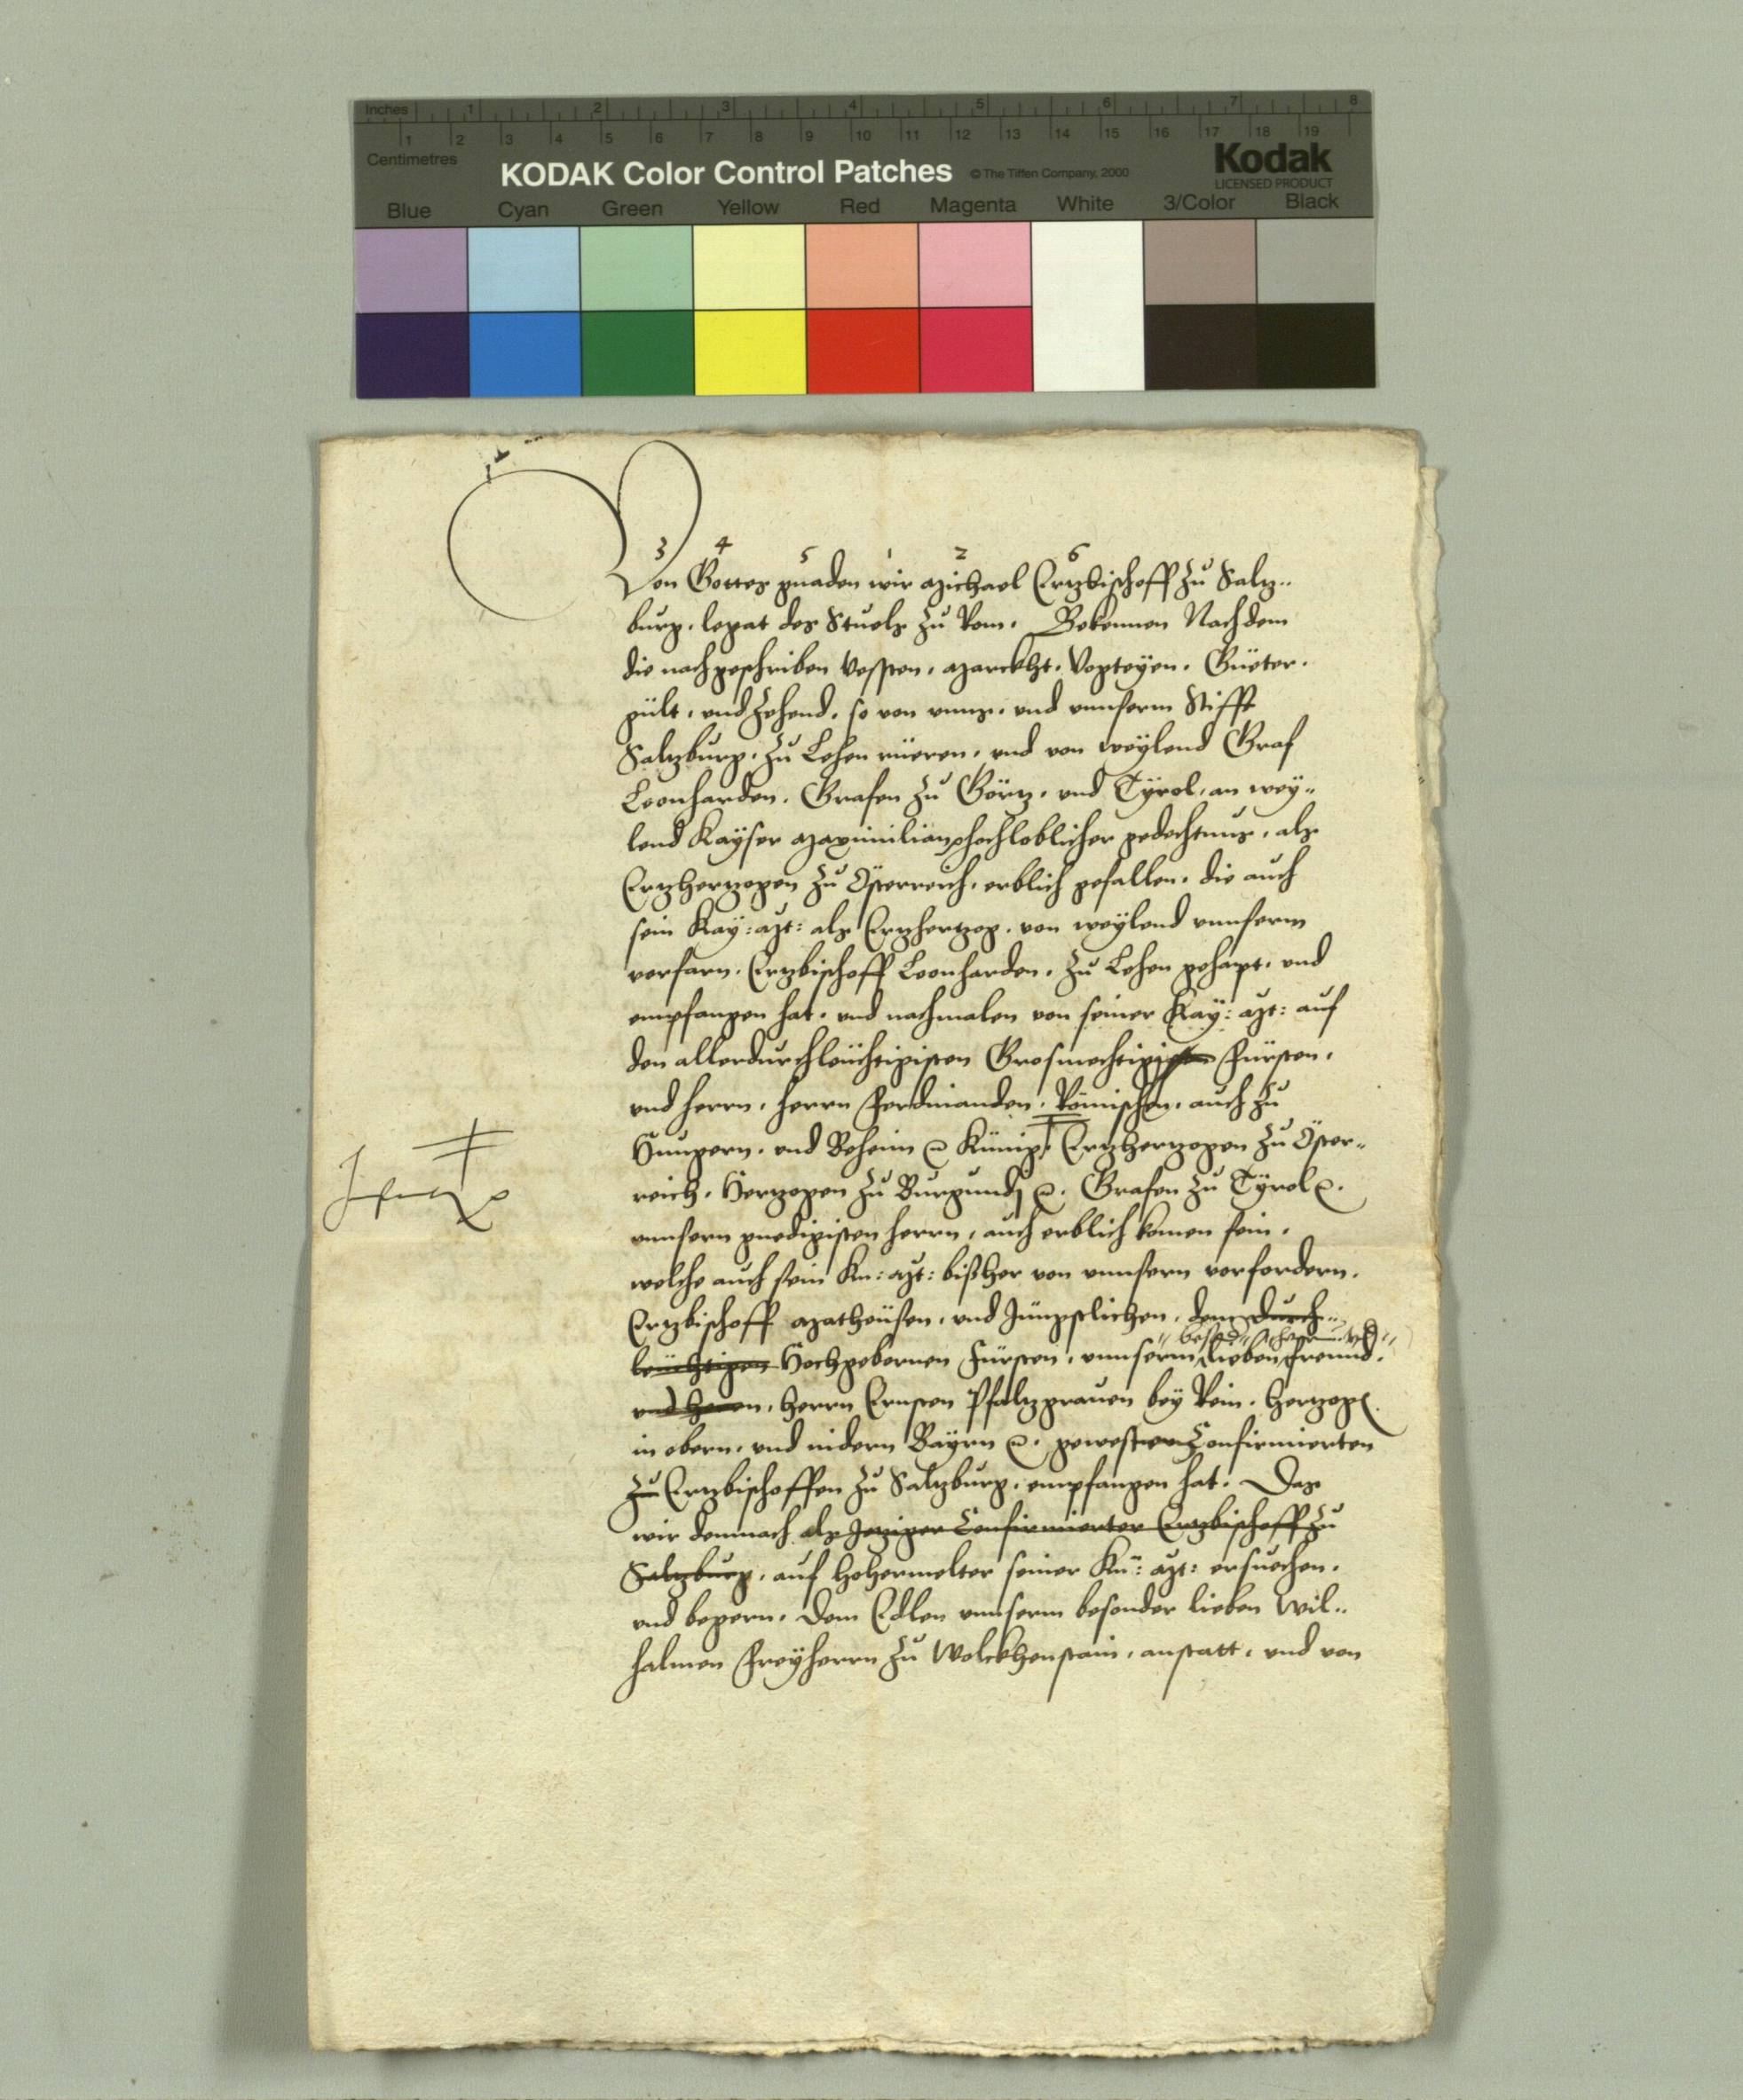 Inches 1 2 3 4 5 6 7 8
1 2 3 4 5 6 7 8 9 10 11 12 13 14 15 16 17 18 19
Centimetres
KODAK Color Control Patches © The Tiffen Company, 2000 Kodak
LICENSED PRODUCT
Blue Cyan Green Yellow Red Magenta White 3/Color Black
3 4 5 1 2 6
Von Gottes gnaden wir Michael Ertzbischoff zu Saltz„
burg, legat des Stuels zu Rom, Bekennen Nachdem
die nachgeschriben Vessten, Marckht, Vogteyen, Güeter,
gült, und Zehend, so von unns, und unnserm Stifft
Saltzburg, zu Lehen rüeren, und von weylend Graf
Leonharden, Grafen zu Görtz, und Tÿrol, an wey„
lend Kaÿser Maximilian hochloblicher gedechtnus, als
Ertzhertzogen zu Österreich, erblich gefallen, die auch
sein Kay: Mt: als Ertzhertzog, von weylend unnserm
vorfarn, Ertzbischoff Leonharden, zu Lehen gehapt, und
empfangen hat, und nachmalen von seiner Kay: Mt: auf
den allerdurchleüchtigisten Grosmechtigisten Fürsten,
und herrn, herrn Ferdinanden, Römischen, auch zu
Hungern, und Beheim Künig, Ertzhertzogen zu Öster„
reich, Hertzogen zu Burgundj, Grafen zu Tÿrol,
unnsern gnedigisten herrn, auch erblich komen sein,
welche auch sein Kn: Mt: bißher von unnsern vorfordern,
Ertzbischoff Matheüsen, und Jüngstlichen, dem durch„
leüchtigen Hochgebornen Fürsten, unnserm lieben freund,
und herrn, herrn Ernsten Pfaltzgrauen bey Rein, Hertzog
in obern, und nidern Bayrn, gewesten Confirmierten
zu Ertzbischoffen zu Saltzburg, empfangen hat, Das
wir demnach als Jetziger Confirmierter Ertzbischoff zu
Saltzburg, auf hohermelter seiner Kü: Mt: ersuechen,
und begern, dem Edlen unnserm besonder lieben Wil„
halmen Freyherrn zu Wolckhenstain, anstatt, und von